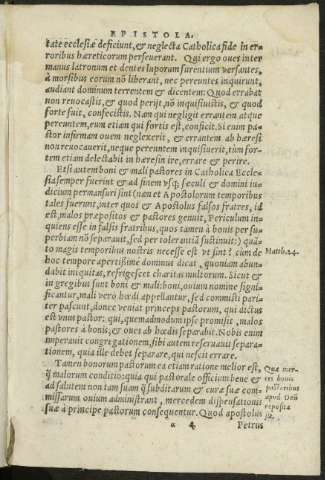 EPISTOLA.
tate ecclesiæ deficiunt, & neglecta Catholica fide in er-
roribus hæreticorum perseuerant. Qui ergo oues inter
manus latronum et dentes luporum furentium versantes,
à morsibus eorum nõ liberant, nec pereuntes inquirunt,
audiant dominum terrentem & dicentem: Quod errabat
non reuocastis, & quod perijt, nõ inquisiuistis, & quod
forte fuit, confecistis. Nam qui negligit errantem atque
pereuntem, eum etiam qui fortis est, conficit. Si enim pa-
stor infirmam ouem neglexerit, & errantem ab hæresi
non reuocauerit, neque pereuntem inquisierit, tum for-
tem etiam delectabit in hæresin ire, errare & perire.
Etsi autem boni & mali pastores in Catholica Eccle-
sia semper fuerint & ad finem vsq, seculi & domini iu-
dicium permansuri sint (nam et Apostolorum temporibus
tales fuerunt, inter quos & Apostolus falsos fratres, id
est, malos præpositos & pastores genuit, Periculum in-
quiens esse in falsis fratribus, quos tamen à bonis per su-
perbiam nõ separauit, sed per tolerantiã sustinuit:) quã-
to magis temporibus nostris necesse est vt sint? cum de
hoc tempore apertissimè dominus dicat, quoniam abun-
dabit iniquitas, refrigescet charitas multorum. Sicut &
in gregibus sunt boni & mali: boni, ouium nomine signi-
ficantur, mali vero hœdi appellantur, sed commixti pari-
ter pascunt, donec veniat princeps pastorum, qui dictus
est vnus pastor: qui, quemadmodum ipse promisit, malos
pastores à bonis, & oues ab hœdis separabit. Nobis enim
imperauit congregationem, sibi autem reseruauit separa-
tionem, quia ille debet separare, qui nescit errare.
Tamen bonorum pastorum ea etiam ratione melior est,
q̃ malorum conditio: quia qui pastorale officium bene &
ad salutem non tam suam q̃ subditarum & curæ suæ com-
missarum ouium administrant, mercedem dispensationis
suæ à principe pastorum consequentur. Quod apostolus
a 4. Petrus
Matth. 24.
Quæ mer-
ces bonis
pastoribus
apud Deũ
reposita